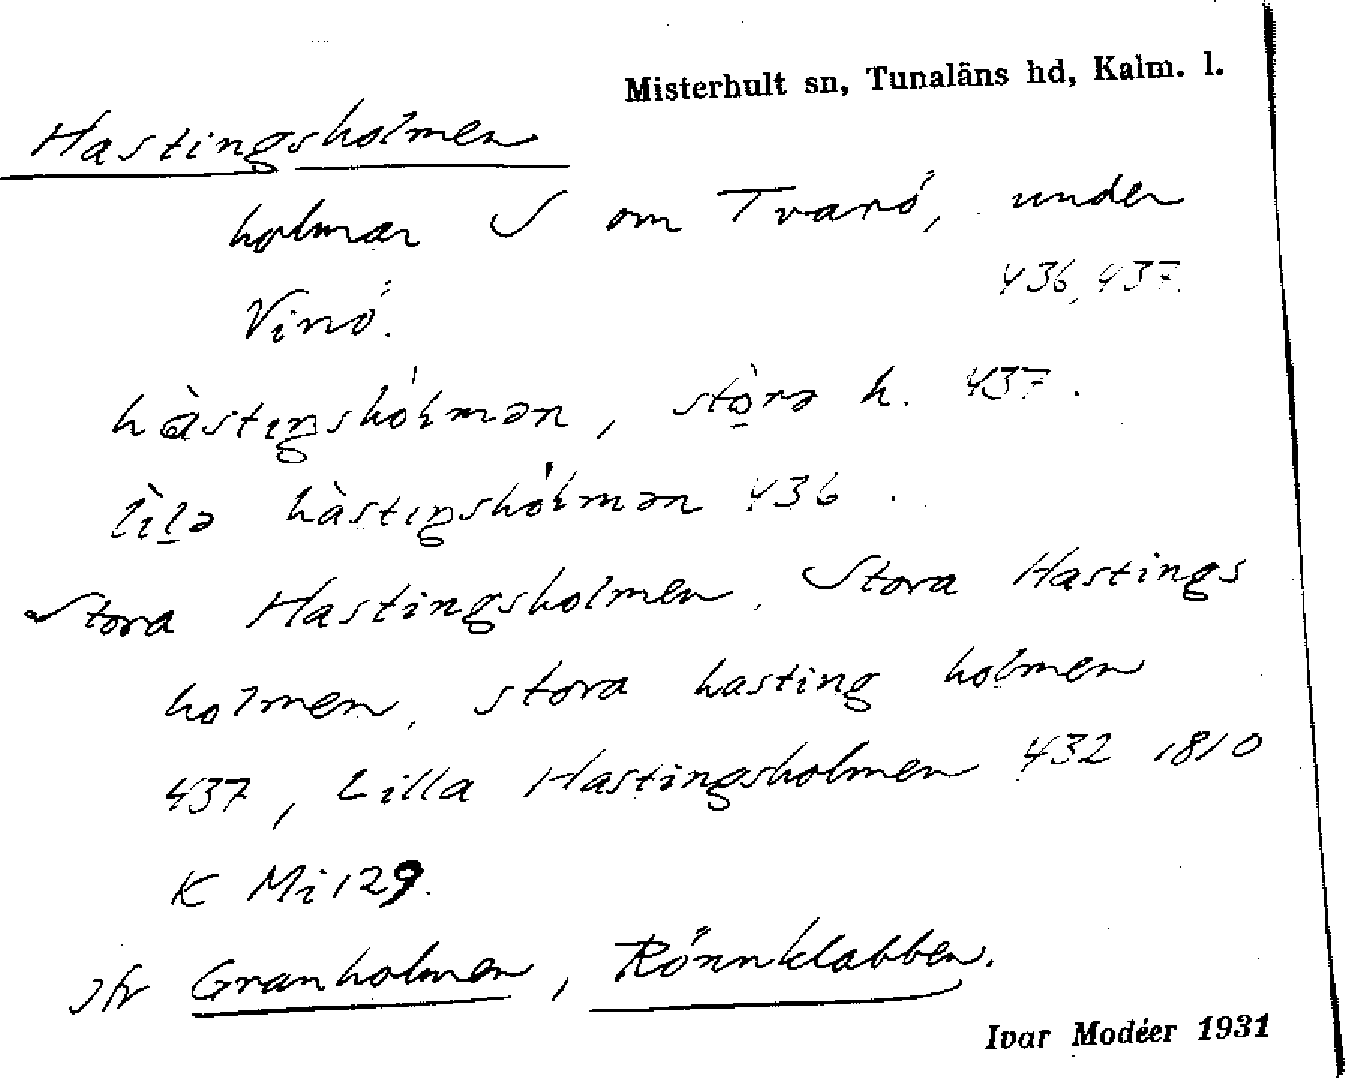 Misterhult sn, Tunaläns hd, Kalm. l.
Hastingsholmen
holmar S om Tvarö, under
Vinö. 436, 437.
hàstıŋshóɫmən, stò̱rə h. 437.
lìl̠ə hàstıŋshóɫmən 436.
Stora Hastingsholmen, Stora Hastings
holmen, stora hasting holmen
437, Lilla Hastingsholmen 432 1810
K Mi 129.
jfr Granholmen, Rönnklabben.
Ivar Modéer 1931